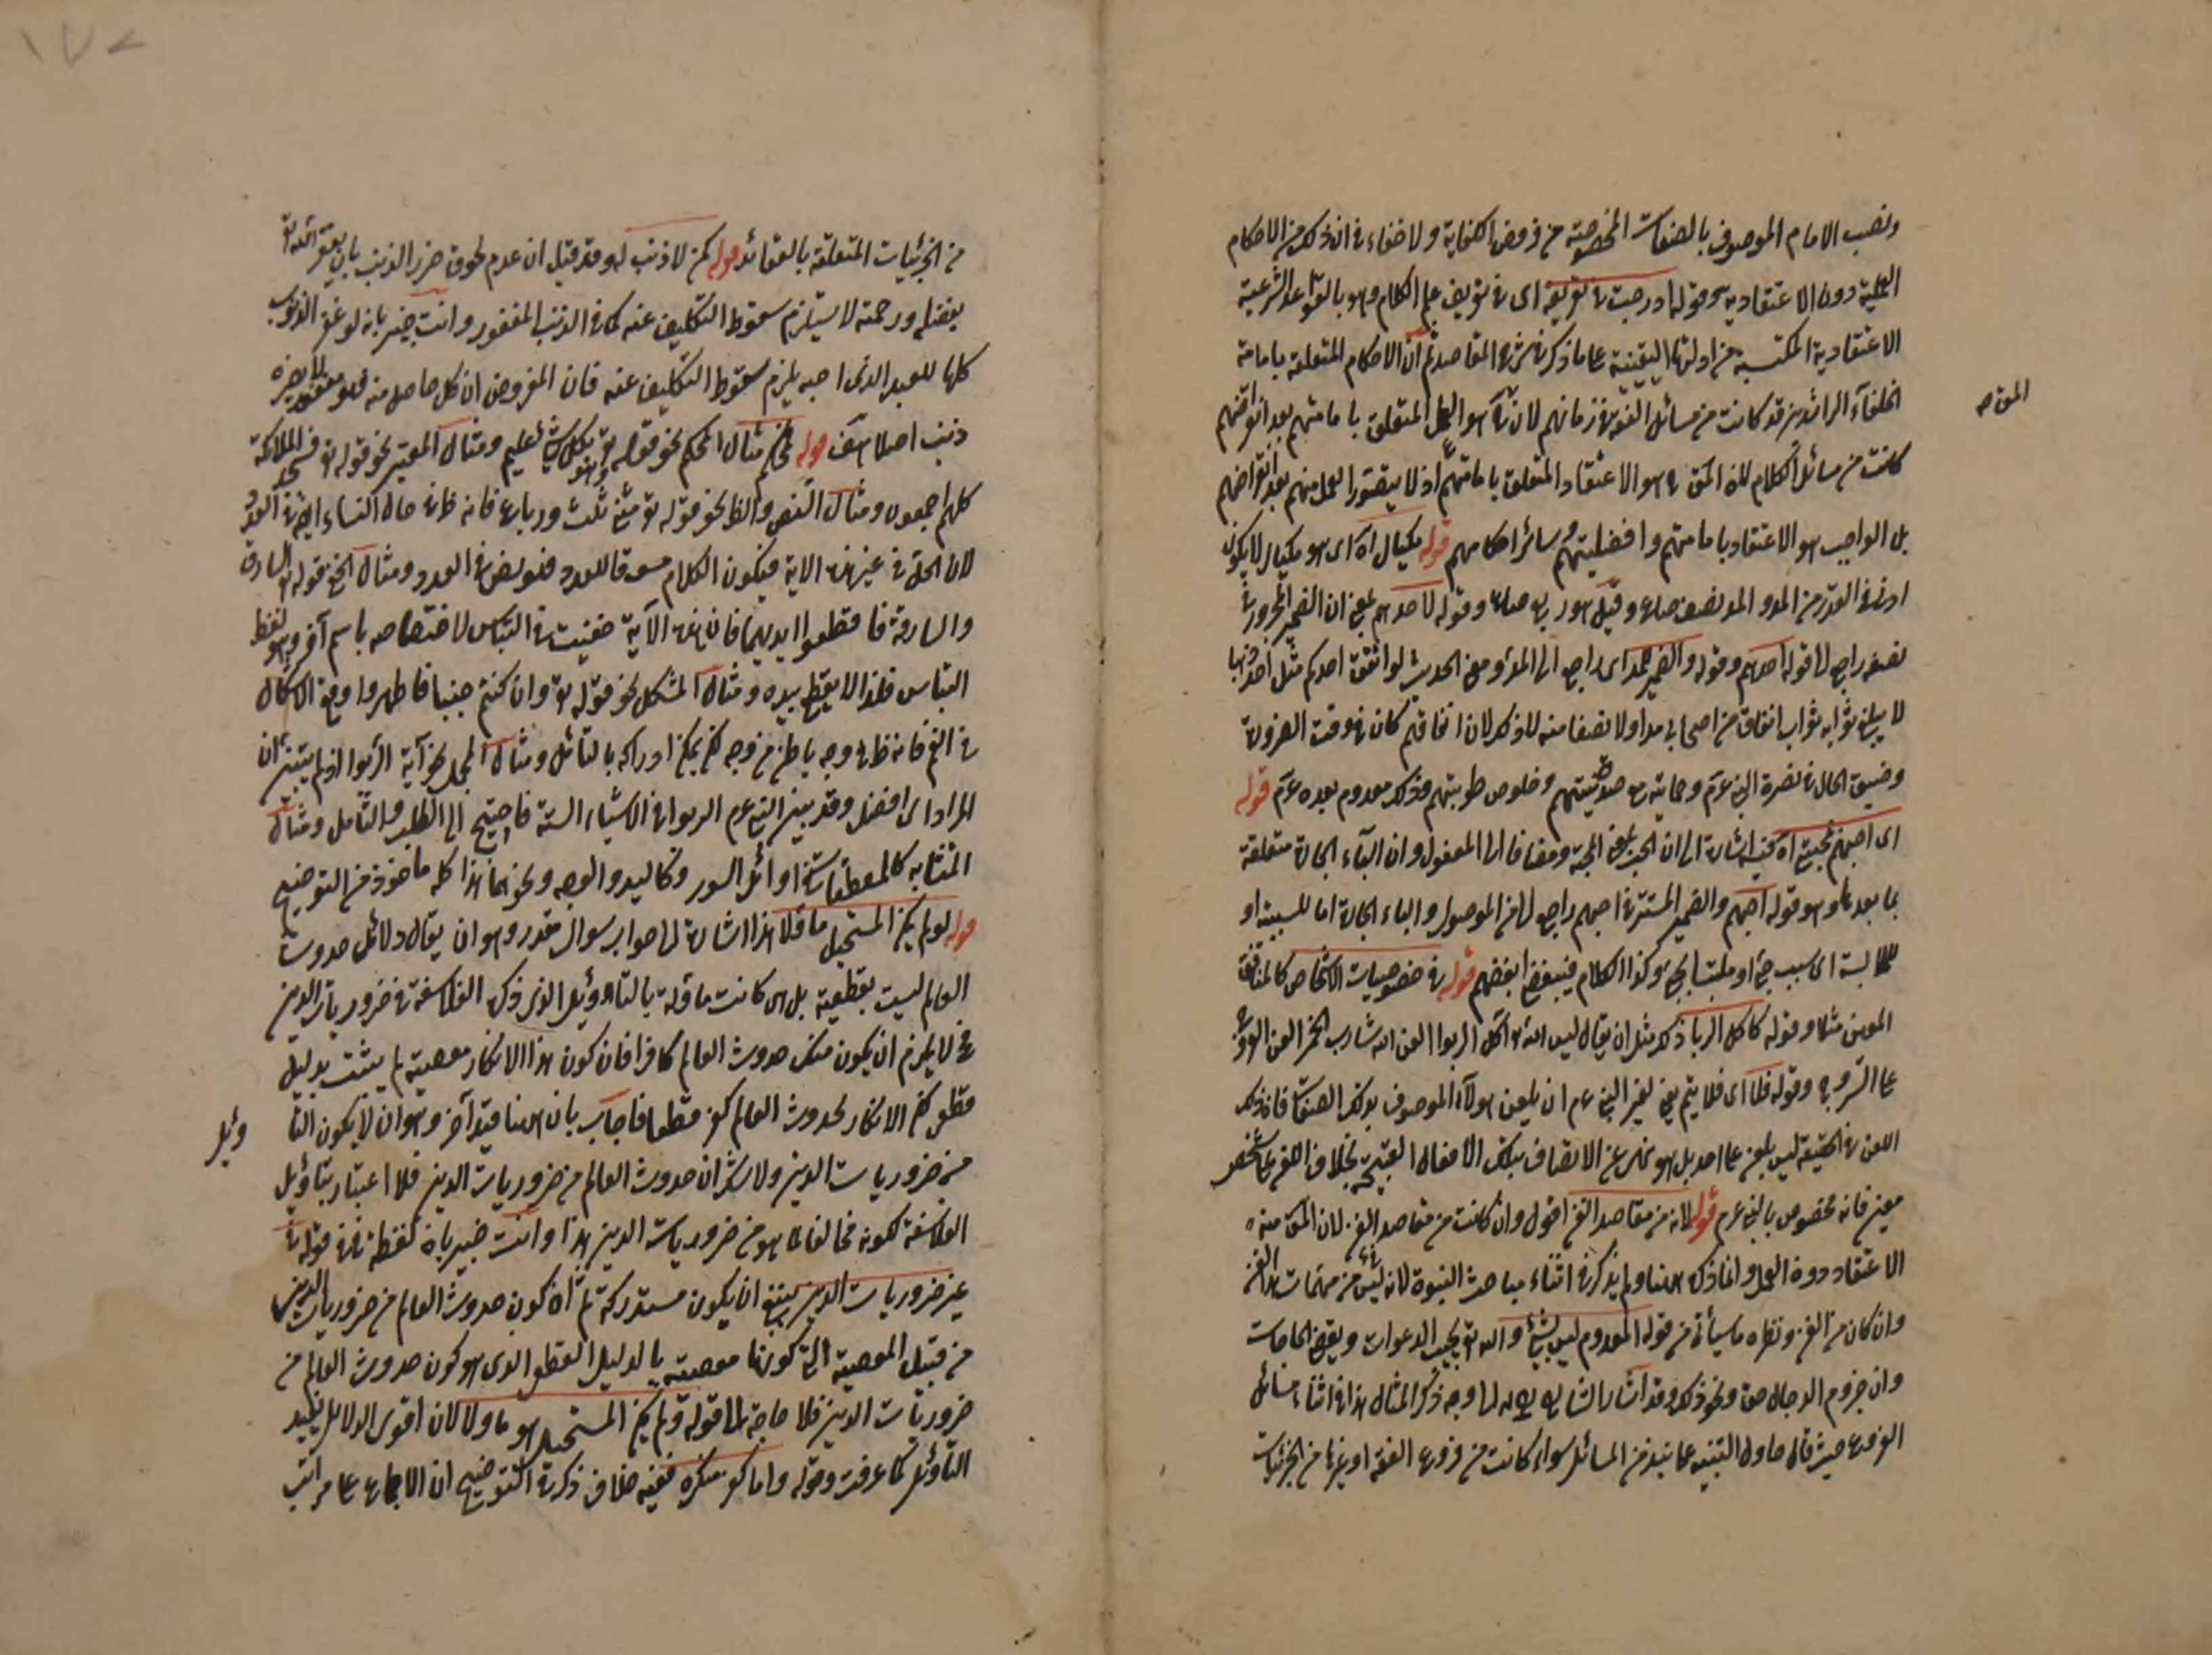 ونصب الامام الموصوف بالصفات المخصوصة من فروض الكفاية ولا خفاء في ان ذلك من الاحكام
العملية دون الاعتقادية وقوله ادرجت في تعريفه اى في تعريف علم الكلام وهو بالقواعد الشرعية
الاعتقادية المكتسبة من ادلتها اليقينية على ما ذكر في شرح المقاصد ثم ان الاحكام المتعلقة بامامة
الخلفآء الراشدين قد كانت من مسائل الفقه في زمانهم لان هو العمل المتعلق بامامتهم بعد انقراضهم
كانت من مسائل الكلام لان المق هو الاعتقاد المتعلق بامامتهم اذ لا يتصور العمل منهم بعد انقراضهم
بل الواجب هو الاعتقاد بامامتهم وافضليتهم وسائر احكامهم قوله مكيال آه اى هو مكيال لا يكون
ادنى في القدر من المد والمد نصف صاع وقيل هو ربع صاع وقوله لاحدهم يعنى ان الضمير المجرور في
نصفه راجع الى قوله احدهم وقوله والضمير للمد اى راجع الى المد ومعنى الحديث لو انفق احدكم مثل احد ذهبا
لا يبلغ ثوابه ثواب انفاق من اصحابي مدا ولا نصفا منه للذكر لان انفاقهم كان في وقت الضرورة
وضيق الحال في نصرة النبي عم وحمايته مع صدق نيتهم وخلوص طويتهم وذلك معدوم بعده عم قوله
اى احبهم بحبي آه فيه اشارة الى ان الحب بمعنى المحبة ومضاف الى المفعول وان الباء الجارة متعلقة
بما بعدها وهو قوله احبهم والضمير المستتر في احبهم راجع الى من الموصول والباء الجارة اما للسببية او
للملابسة اى بسبب حبى او ملتبسا بحبى وكذا الكلام فيبغضى ابغضهم قوله في خصوصيات الاشخاص كالمنافق
المعين مثلا وقوله كاكل الربا ذكر مثل ان يقال لعن الله آكل الربوا العن الله شارب الخمر العن الله
على السروج وقوله فلا اى فلا يتم يعنى لغير النبى عم ان يلعن هولآء الموصوف بذلك الصفات فان ذلك
اللعن في الحقيقة ليس بلعن على احد بل هو نهى عن الاتصاف بتلك الافعال القبيحة بخلاف اللعن على شخص
معين فانه مخصوص بالنبى عم قوله لانه من مقاصد الفن اقول وان كانت من مقاصد الفن لان المق منه
الاعتقاد دون العمل وانما ذكره هنا ولم يذكره في اثناء مباحث النبوة لانه ليس من مهمات هذا الفن
وان كان من الفن ونظيره ما سيأتى من قوله المعدوم ليس بشئ والله تعالى يجيب الدعوات ويقضى الحاجات
وان خروج الدجال حق ونحو ذلك وقد اشار الشارح الى وجه ذكر المثال هذا في اثناء مسائل
الفروع حيث قال حاول التنبيه على نبذ من المسائل سواء كانت من فروع الفقه او غيرها من الجزئيات
المق صح
من الجزئيات المتعلقة بالعقائد قوله كمن لا ذنب له وقد قيل ان عدم لحوق ضرر الذنب بان يعفو الله
بفضله ورحمته لا يستلزم سقوط التكليف عنه كما في الذنب المغفور وانت خبير بانه لو غفر الذنوب
كلها للعبد الذى احبه يلزم سقوط التكليف عنه فان المفروض ان كل ما حصل منه فهو مغفور لا يضره
ذنب اصلا هف قوله محكم مثال المحكم نحو قوله تعالى وهو بكل شئ عليم ومثال المفسر نحو قوله تعالى فسجد الملائكة
كلهم اجمعون ومثال النص والظ نحو قوله تعالى مثنى وثلث ورباع فانه ظ في حال النساء نص في العدد
لان الحل في غير هذه الاية فيكون الكلام مسوقا للعدد فهو نص في العدد ومثال الخفى قوله تعالى السارق
والسارقة فاقطعوا ايديهما فان هذه الآية خفيت في النباش لاختصاصه باسم آخر وهو لفظ
النباش فلذا لا يقطع يده ومثال المشكل نحو قوله تعالى وان كنتم جنبا فاطهروا وقع الاشكال
في الفم فانه ظ من وجه باطن من وجه لكن يمكن ادراكه بالتأمل ومثال المجمل نحو آية الربوا اذ لم يتبين ان
المراد اى فضل وقد بين النبي عم الربوا في الاشياء الستة فاحتيج الى الطلب والتأمل ومثال
المتشابه كالمقطعات في اوائل السور وكاليد والوجه ونحوهما هذا كله مأخوذ من التوضيح
قوله لو لم يكن المستحيل ماؤلا هذا اشارة الى جواب سوال مقدر وهو ان يقال دلائل حدوث
العالم ليست بقطعية بل هى كانت ماؤلة بالتأويل الذى ذكره الفلاسفة في ضروريات الدين
فح لا يلزم ان يكون منكر حدوث العالم كافرا فان كون هذا الانكار معصية لم يثبت بدليل
قطعى لكن الانكار لحدوث العالم كفر قطعا فاجاب بان هنا قيد آخر وهو ان لا يكون التا
ويل
من ضروريات الدين ولا شك ان حدوث العالم من ضروريات الدين فلا اعتبار بتاويل
الفلاسفة لكونه مخالفا لما هو من ضروريات الدين هذا وانت خبير بان لفظة في قوله في
غير ضروريات الدين ينبغى ان يكون مستدركة ثم ان كون حدوث العالم من ضروريات الدين
من قبيل المعصية التى كونها معصية بالدليل القطعى الذى هو كون حدوث العالم من
ضروريات الدين فلا حاجة الى قوله ولم يكن المستحيل هو ماولا لان اقوى الدلائل يفيد
التأويل كما عرفت وقوله واما كفر منكره ففيه خلاف ذكر في التوضيح ان الاجماع على مراتب